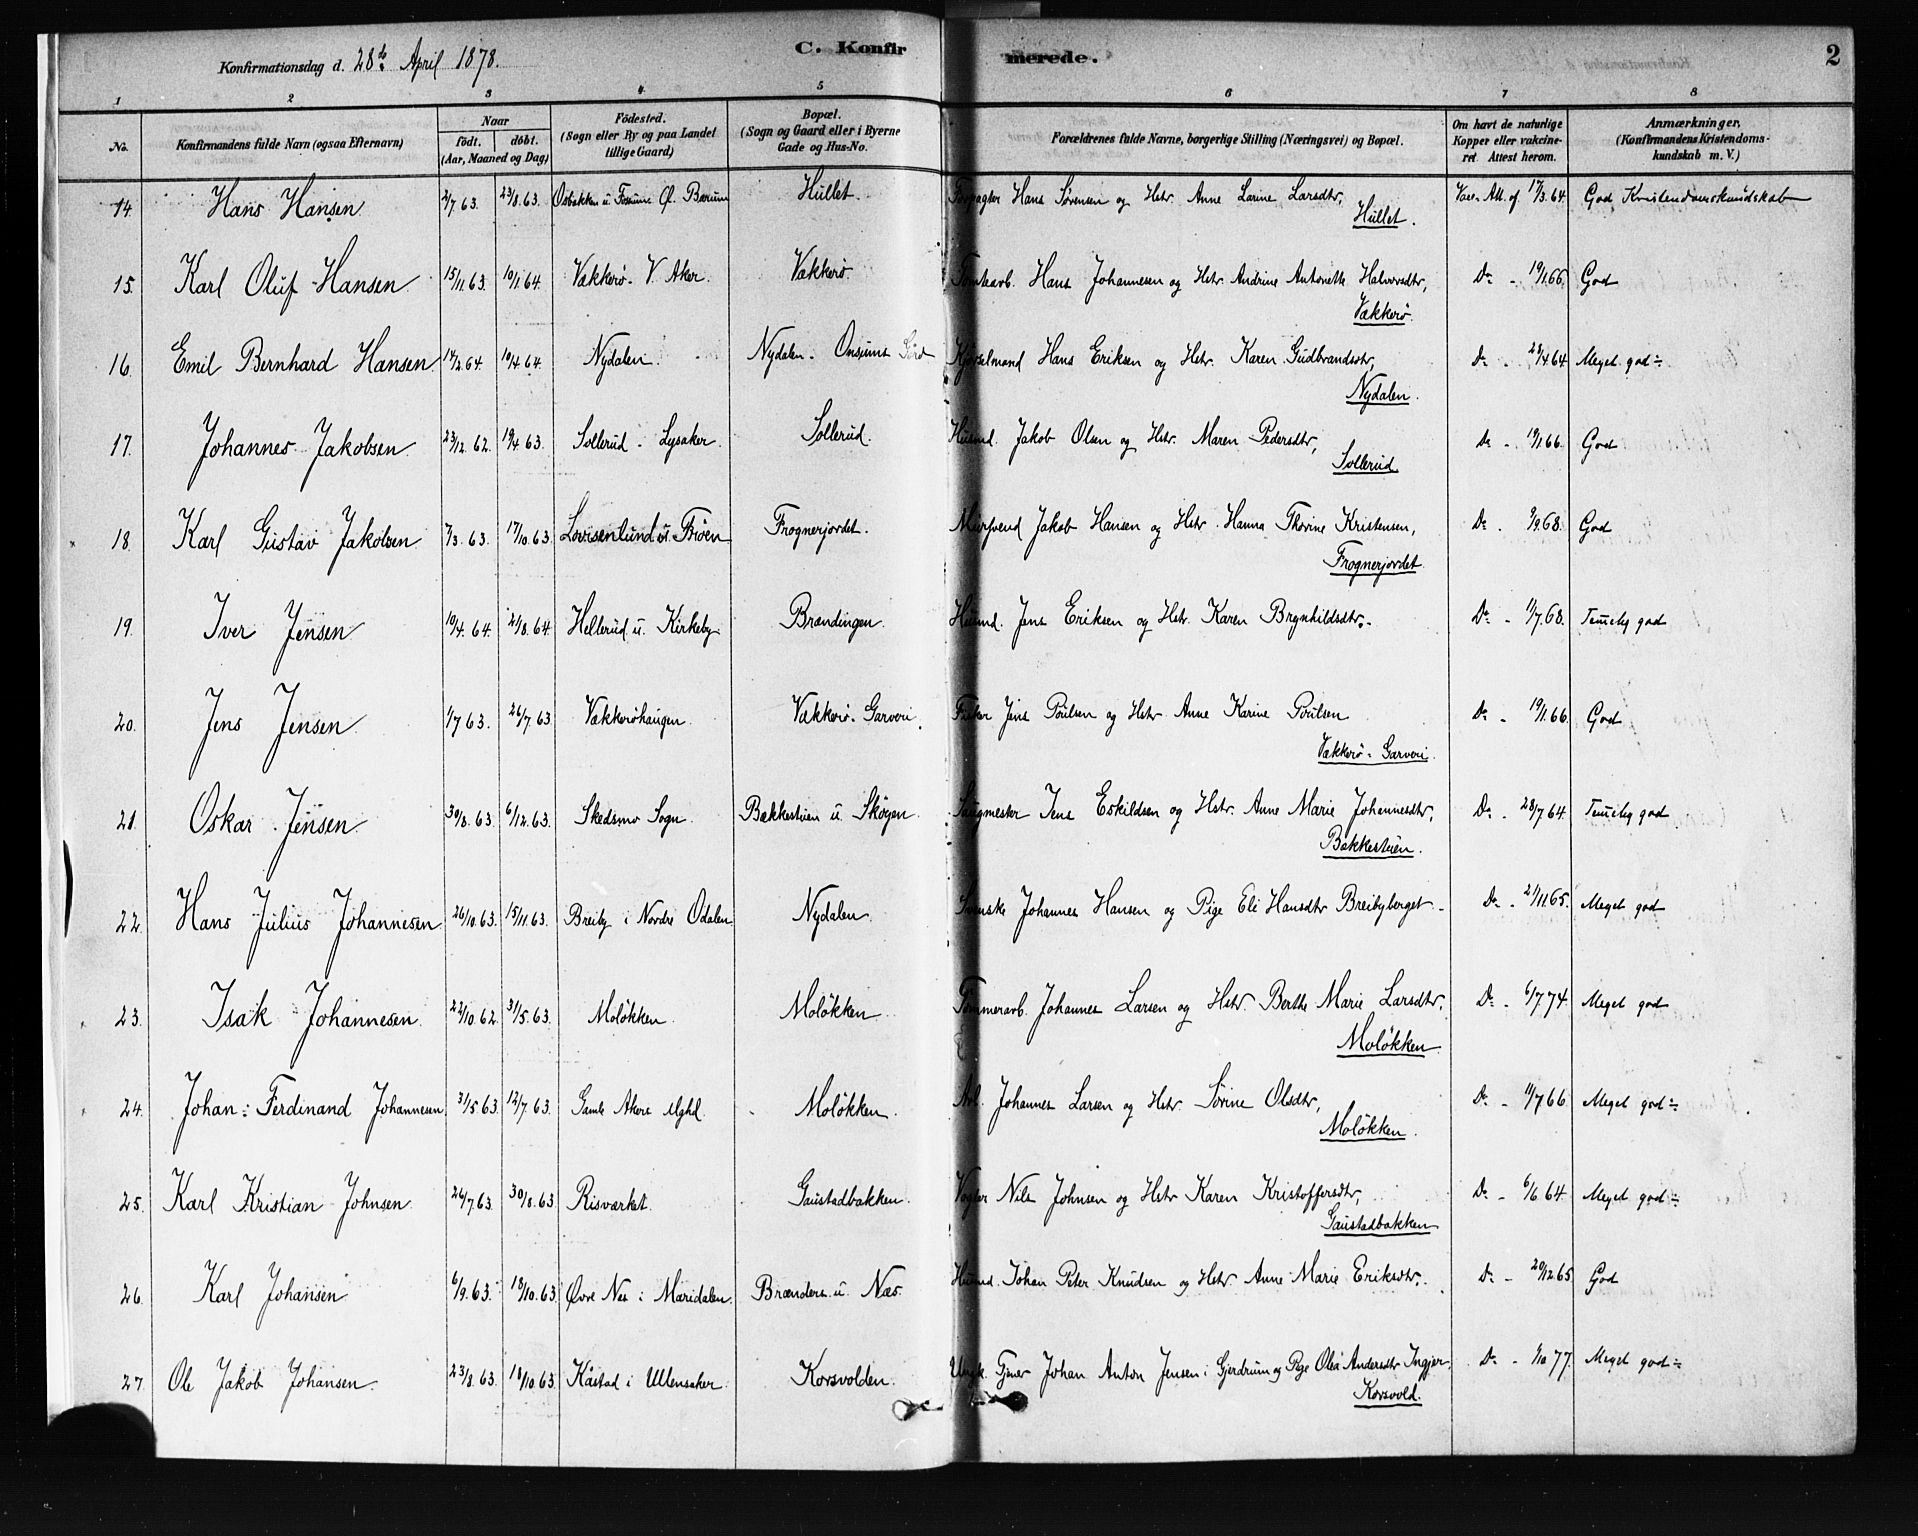 Konfirmationsdag d. 28de April 1878.
C. Konfir merede. 2
1 2 3 4 5 6 7 8
No. Konfirmandens fulde Navn (ogsaa Efternavn) Naar födt. döbt. (Aar, Maaned og Dag) Födested. (Sogn eller By og paa Landet tillige Gaard) Bopæl. (Sogn og Gaard eller i Byerne Gade og Hus-No. Forældrenes fulde Navne, borgerlige Stilling (Næringsvei) og Bopæl. Om havt de naturlige Kopper eller vakcineret. Attest herom. Anmærkninger, (Konfirmandens Kristendomskundskab m. V.)
14 Hans Hansen 2/7 63. 23/8. 63. Osbakken u. Fossum Ø. Bærum Hullet Forpagter Hans Sørensen og Hstr. Anne Larine Larsdtr, Vacc. Att. af 17/3. 64. God Kristendomskundskab
Hullet.
15. Karl Oluf Hansen 15/11. 63. 10/1. 64. Vækkerø. V. Aker. Vækkerø Tomtearb. Hans Johannesen og Hstr. Andrine Antonette Halvorsdtr, Do - 19/1. 66. God
Vækkerø.
16. Emil Bernhard Hansen 17/2. 64. 10/4 64. Nydalen Nydalen. Onsums Kjørselmand Hans Eriksen og Hstr. Karen Gudbrandsdtr, Do - 28/4 64 Meget god ÷
Nydalen.
17. Johannes Jakobsen 23/12. 62. 19/4 63. Sollerud - Lysaker. Sollerud. Husmd. Jakob Olsen og Hstr. Maren Pedersdtr, Do - 19/1. 66. God
Sollerud
18. Karl Gustav Jakobsen 7/3. 63. 17/10. 63. Lovisenlund u. Frøen Frognerjordet. Murfvend Jakob Hansen og Hstr. Hanna Thorine Kristensen, Do. 9/9. 68. God
Frognerjordet.
19. Iver Jensen 10/4. 64. 21/8. 64. Hellerud u. Kirkeby Brændingen. Husmd. Jens Eriksen og Hstr. Karen Brynhildsdtr. Do - 11/7. 68. Temelig god
20. Jens Jensen 1/7 63. 26/7. 63. Vækkerøhaugen. Vækkerø. Garveri. Fisker Jens Poulsen og Hstr. Anne Karine Poulsen Do - 19/1. 66. God
Vækkerø - Garveri.
21. Oskar Jensen 30/8. 63. 6/12. 63. Skedsmo Sogn. Bakkestuen u. Skøyen. Saugmester Jens Eskildsen og Hstr. Anne Marie Johannesdtr, Do. 28/7. 64. Temelig god
Bakkestuen.
22. Hans Julius Johannesen 26/10. 63. 15/11. 63. Breiby i Nordre Odalen Nydalen. Svenske Johannes Hansen og Pige Eli Hansdtr Breibyberget - Do - 21/11. 65. Meget god
23. Isak Johannesen 22/10. 62. 31/5. 63. Moløkken. Moløkken Tømmerarb. Johannes Larsen og Hstr. Berthe Marie Larsdtr. Do - 6/7 74. Meget god
Moløkken
24. Johan Ferdinand Johannesen 31/5. 63. 12/7. 63. Gamle Akers Mghd. Moløkken. Arb. Johannes Larsen og Hstr. Sørine Olsdtr, Do - 11/7 66. Meget god ÷
Moløkken.
25. Karl Kristian Johnsen 26/7. 63. 30/8. 63 Risværket. Gaustadbakken. Vogter Nils Johnsen og Hstr Karen Kristoffersdtr, Do - 6/6. 64. Meget god ÷
Gaustadbakken
26. Karl Johansen 6/9. 63. 18/10. 63. Øvre Nes i Maridalen. Brænderi u. Næs. Husmd. Johan Peter Knudsen og Hstr Anne Marie Eriksdtr. Do - 20/12. 65. God
27. Ole Jakob Johansen. 23/8. 63. 18/10. 63. Kåstad i Ullensaker. Korsvolden. Ungk. Tjener Johan Anton Jensen i Gjerdrum og Pige Olea Andersdtr Ingjer. Do - 1/10 77. Meget god ÷
Korsvold.